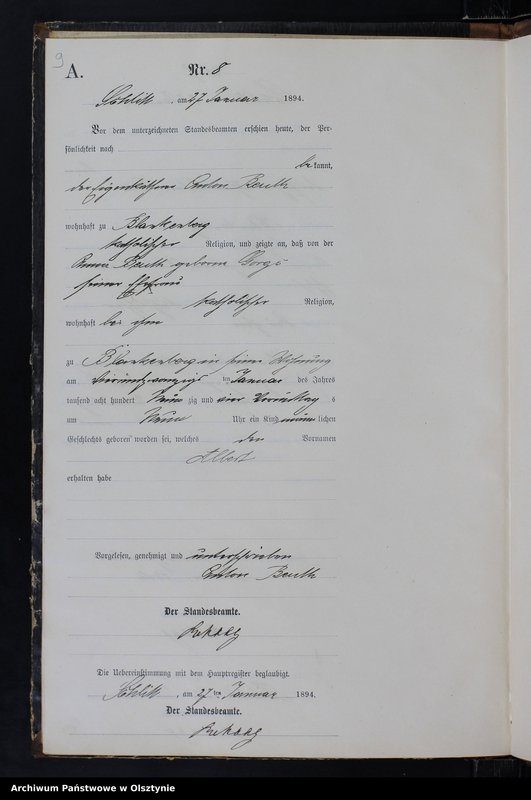 9
A.
Nr. 8
am 27 Januar 1894.
Vor dem unterzeichneten Standesbeamten erschien heute, der Per-
sönlichkeit nach
be kannt,
der Eigenkäthner Anton Beuth
wohnhaft zu Blankenberg
katholischer Religion, und zeigte an, daß von der
Anna Beuth geborne
seiner Ehefrau
katholischer Religion,
wohnhaft bei ihm
zu Blankenberg in seiner Wohnung
am vierundzwanzigsten Januar des Jahres
tausend acht hundert neun zig und vier Vormittag s
um neun Uhr ein Kind männ lichen
Geschlechts geboren worden sei, welches den Vornamen
Albert
erhalten habe
Vorgelesen, genehmigt und unterschrieben
Anton Beuth
Der Standesbeamte.
Die Uebereinstimmung mit dem Hauptregister beglaubigt.
am 27 ten Januar 1894.
Der Standesbeamte.
Archiwum Państwowe w Olsztynie